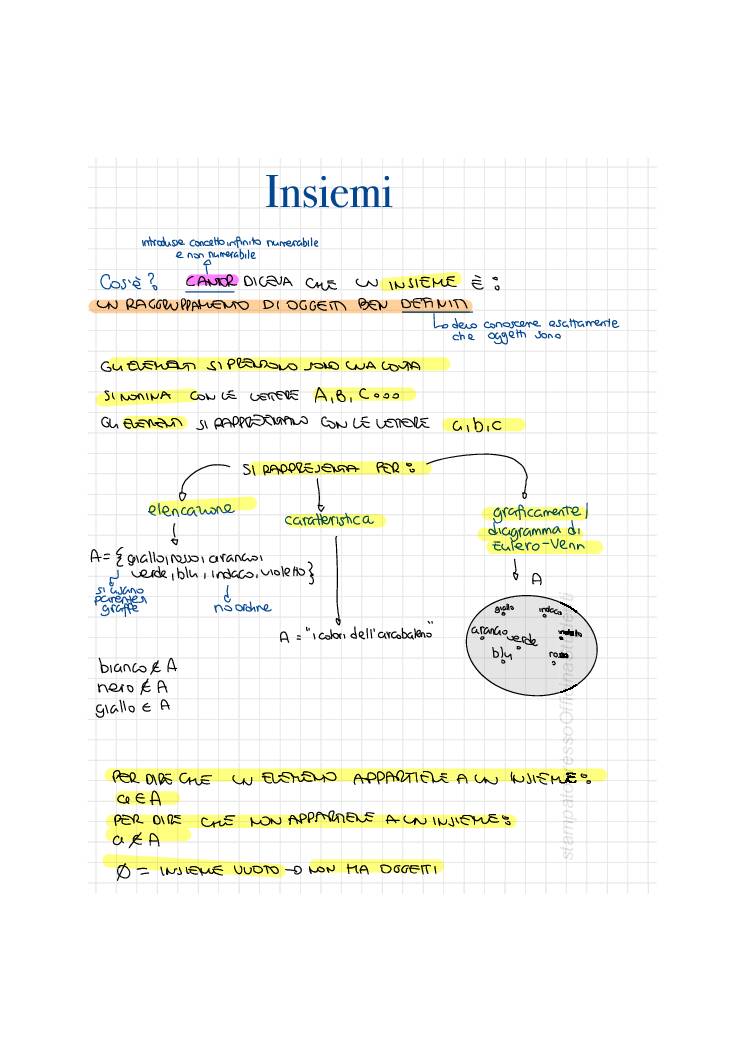 Insiemi
introduse concetto infinito numerabile
e non numerabile
Cos'è? CANTOR DICEVA CHE UN INSIEME È:
UN RAGGRUPPAMENTO DI OGGETTI BEN DEFINITI
devo conoscere esattamente
che oggetti sono
GLI ELEMENTI SI PRENDONO SOLO UNA VOLTA
SI NOMINA CON LE LETTERE A, B, C...
GLI ELEMENTI SI RAPPRESENTANO CON LE LETTERE a, b, c
SI RAPPRESENTA PER:
elencazione
caratteristica
graficamente/
diagramma di
Eulero-Venn
A = {giallo, rosso, arancio,
verde, blu, indaco, violetto}
si usano
parentesi
graffe
no ordine
A = "i colori dell'arcobaleno"
A
giallo indaco
arancio verde violetto
blu rosso
bianco ∉ A
nero ∉ A
giallo ∈ A
PER DIRE CHE UN ELEMENTO APPARTIENE A UN INSIEME:
a ∈ A
PER DIRE CHE NON APPARTIENE A UN INSIEME:
a ∉ A
∅ = INSIEME VUOTO → NON HA OGGETTI